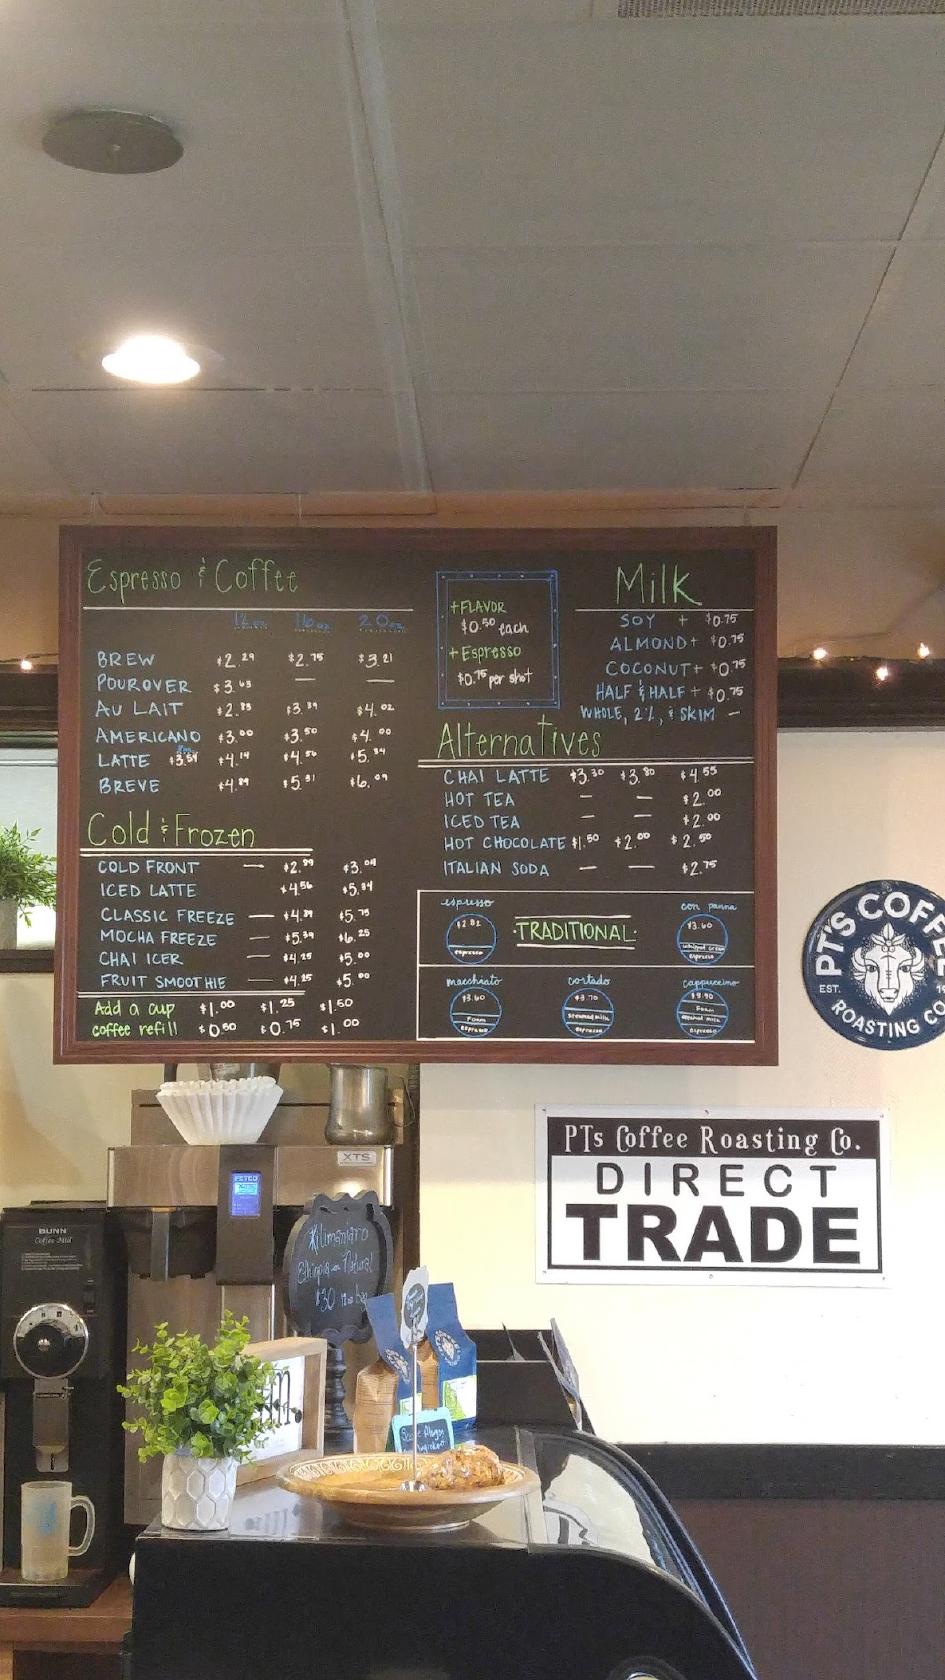 Espresso & Coffee
12 oz 16 oz 20 oz
BREW $2.29 $2.75 $3.21
POUROVER $3.63 — —
AU LAIT $2.83 $3.39 $4.02
AMERICANO $3.00 $3.50 $4.00
LATTE $3.54 $4.14 $4.56 $5.34
BREVE $4.89 $5.31 $6.09
Cold & Frozen
COLD FRONT — $2.89 $3.04
ICED LATTE $4.56 $5.34
CLASSIC FREEZE — $4.39 $5.75
MOCHA FREEZE — $5.39 $6.25
CHAI ICER — $4.25 $5.00
FRUIT SMOOTHIE — $4.25 $5.00
Add a cup $1.00 $1.25 $1.50
coffee refill $0.50 $0.75 $1.00
+FLAVOR
$0.50 each
+Espresso
$0.75 per shot
Milk
SOY + $0.75
ALMOND + $0.75
COCONUT + $0.75
HALF & HALF + $0.75
WHOLE, 2%, & SKIM —
Alternatives
CHAI LATTE $3.30 $3.80 $4.55
HOT TEA — — $2.00
ICED TEA — — $2.00
HOT CHOCOLATE $1.50 $2.00 $2.50
ITALIAN SODA — — $2.75
·TRADITIONAL·
espresso
$2.82
con panna
$3.60
whipped cream
espresso
macchiato
$3.60
Foam
espresso
cortado
$3.70
steamed milk
espresso
cappuccino
$3.90
Foam
steamed milk
espresso
PT'S COFFEE
EST.
ROASTING CO
PTs Coffee Roasting Co.
DIRECT
TRADE
XTS
FETCO
BUNN
Coffee Mill
Kilimanjaro
Ethiopia Natural
$30 12 oz bag